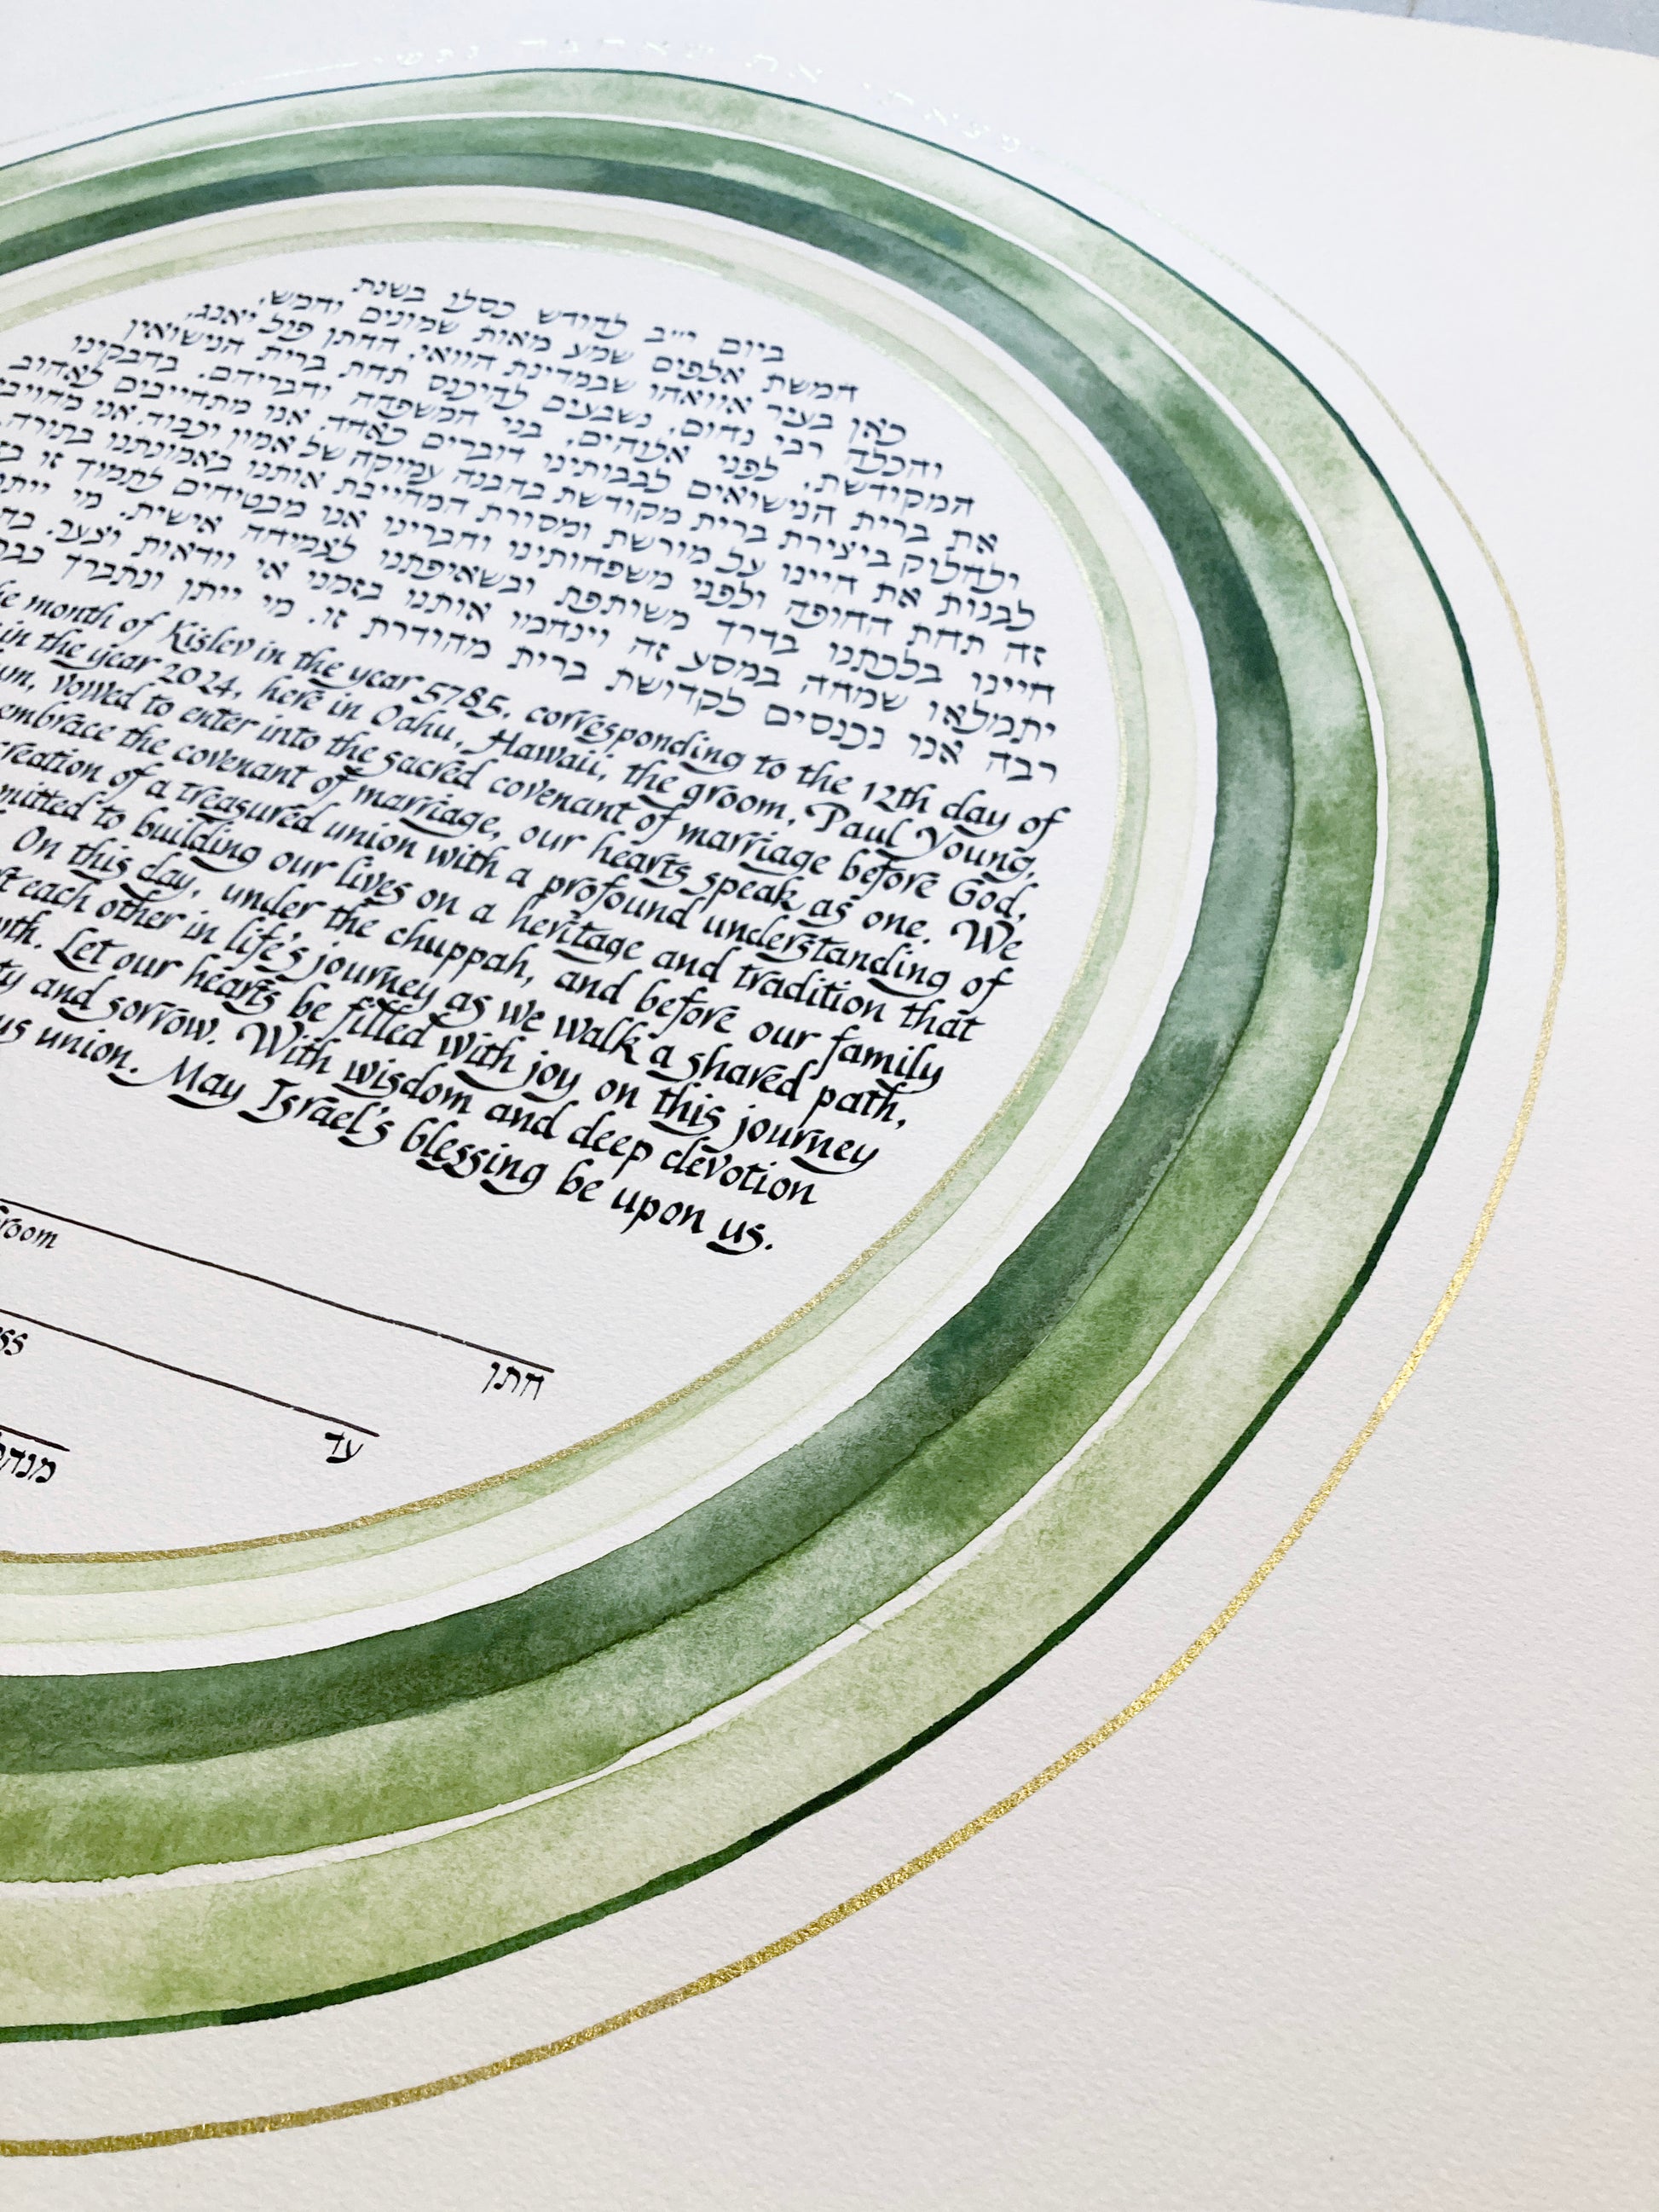 ביום י״ב לחודש כסלו בשנת
חמשת אלפים שבע מאות שמונים וחמש,
כאן בעיר אוואהו שבמדינת הוואי, החתן פול יאנג,
והכלה רבי נחום, נשבעים להיכנס תחת ברית הנישואין
המקודשת, לפני אלוהים, בני המשפחה וחבריהם. בחבקינו
את ברית הנישואים לבבותינו דוברים כאחד. אנו מתחייבים לאהוב
ולחלוק ביצירת ברית מקודשת בהבנה עמוקה של אמון וכבוד. אנו
לבנות את חיינו על מורשת ומסורת המחייבת אותנו באמונתנו בתורה.
זה תחת החופה ולפני משפחותינו וחברינו אנו מבטיחים לתמוך זו
חיינו בלכתנו בדרך משותפת ובשאיפתנו לצמיחה אישית. מי
יתמלאו שמחה במסע זה וינחמו אותנו בזמני אי וודאות וצער.
רבה אנו נכנסים לקדושת ברית מהודרת זו. מי ייתן ונתברך
month of Kislev in the year 5785, corresponding to the 12th day of
in the year 2024, here in Oahu, Hawaii, the groom, Paul Young,
vowed to enter into the sacred covenant of marriage before God,
embrace the covenant of marriage, our hearts speak as one. We
creation of a treasured union with a profound understanding of
to building our lives on a heritage and tradition that
On this day, under the chuppah, and before our family
each other in life's journey as we walk a shared path,
Let our hearts be filled with joy on this journey
and sorrow. With wisdom and deep devotion
union. May Israel's blessing be upon us.
חתן
עד